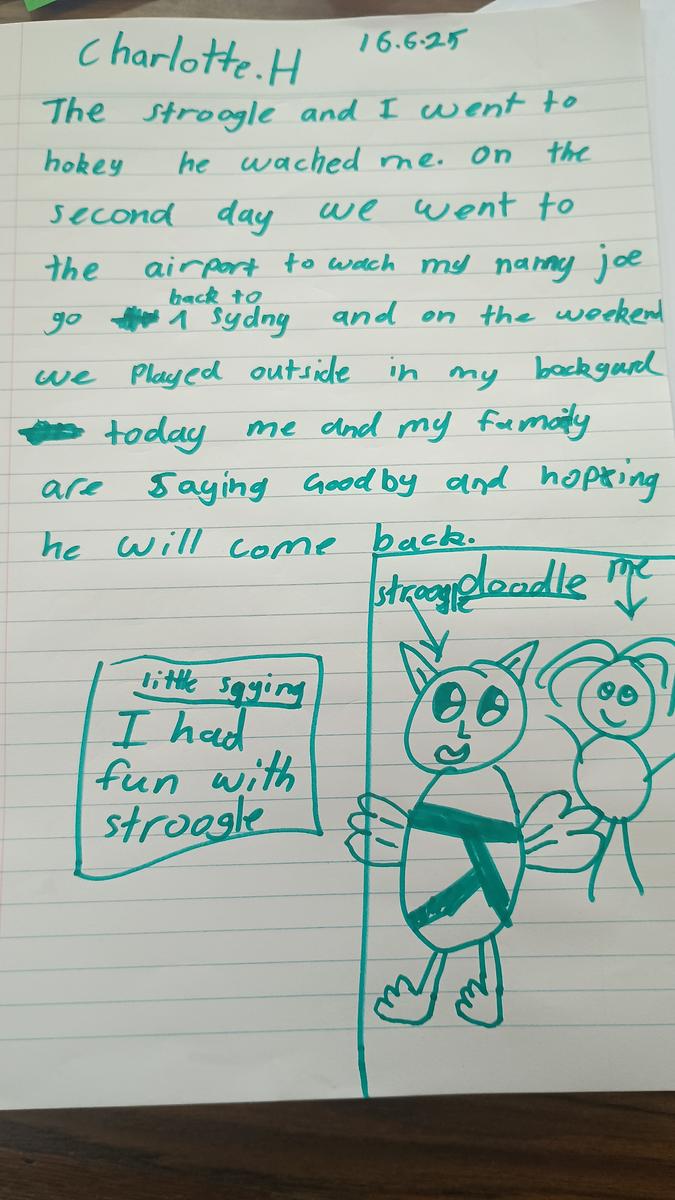 Charlotte.H 16.6.25
The stroogle and I went to
hokey he wached me. on the
second day we went to
the airport to wach my nanny joe
back to
go ^ Sydny and on the weekend
we played outside in my backyard
today me and my family
are saying Goodby and hopking
he will come back.
stroogle doodle me
little sqying
I had
fun with
stroogle